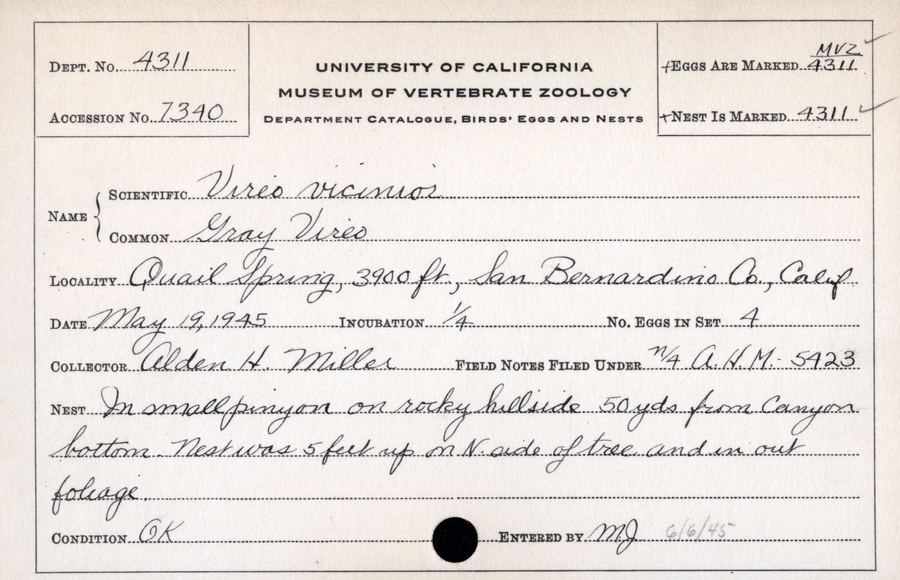 DEPT. No. 4311
ACCESSION No. 7340
UNIVERSITY OF CALIFORNIA
MUSEUM OF VERTEBRATE ZOOLOGY
DEPARTMENT CATALOGUE, BIRDS' EGGS AND NESTS
MVZ
+EGGS ARE MARKED 4311
+NEST IS MARKED 4311
NAME
SCIENTIFIC Vireo vicinior
COMMON Gray Vireo
LOCALITY Quail Spring, 3900 ft, San Bernardino Co., Calif
DATE May 19, 1945 INCUBATION 1/4 No. EGGS IN SET 4
COLLECTOR Alden H. Miller FIELD NOTES FILED UNDER n/4 A.H.M. 5423
NEST In small pinyon on rocky hillside 50 yds from Canyon
bottom. Nest was 5 feet up on N. side of tree and in out
foliage.
CONDITION OK ENTERED BY MJ 6/6/45